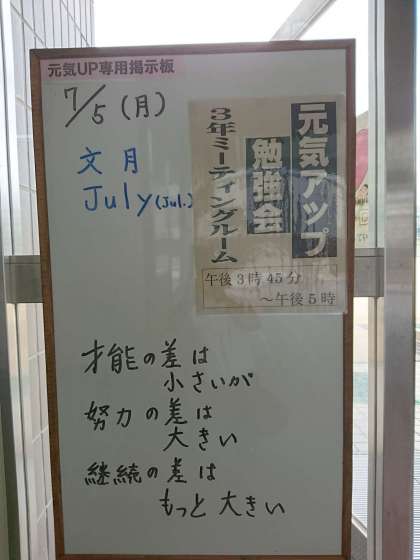 元気UP専用掲示板
7/5(月)
文月
July(Jul.)
元気アップ
勉強会
3年ミーティングルーム
午後3時45分
～午後5時
才能の差は
小さいが
努力の差は
大きい
継続の差は
もっと大きい